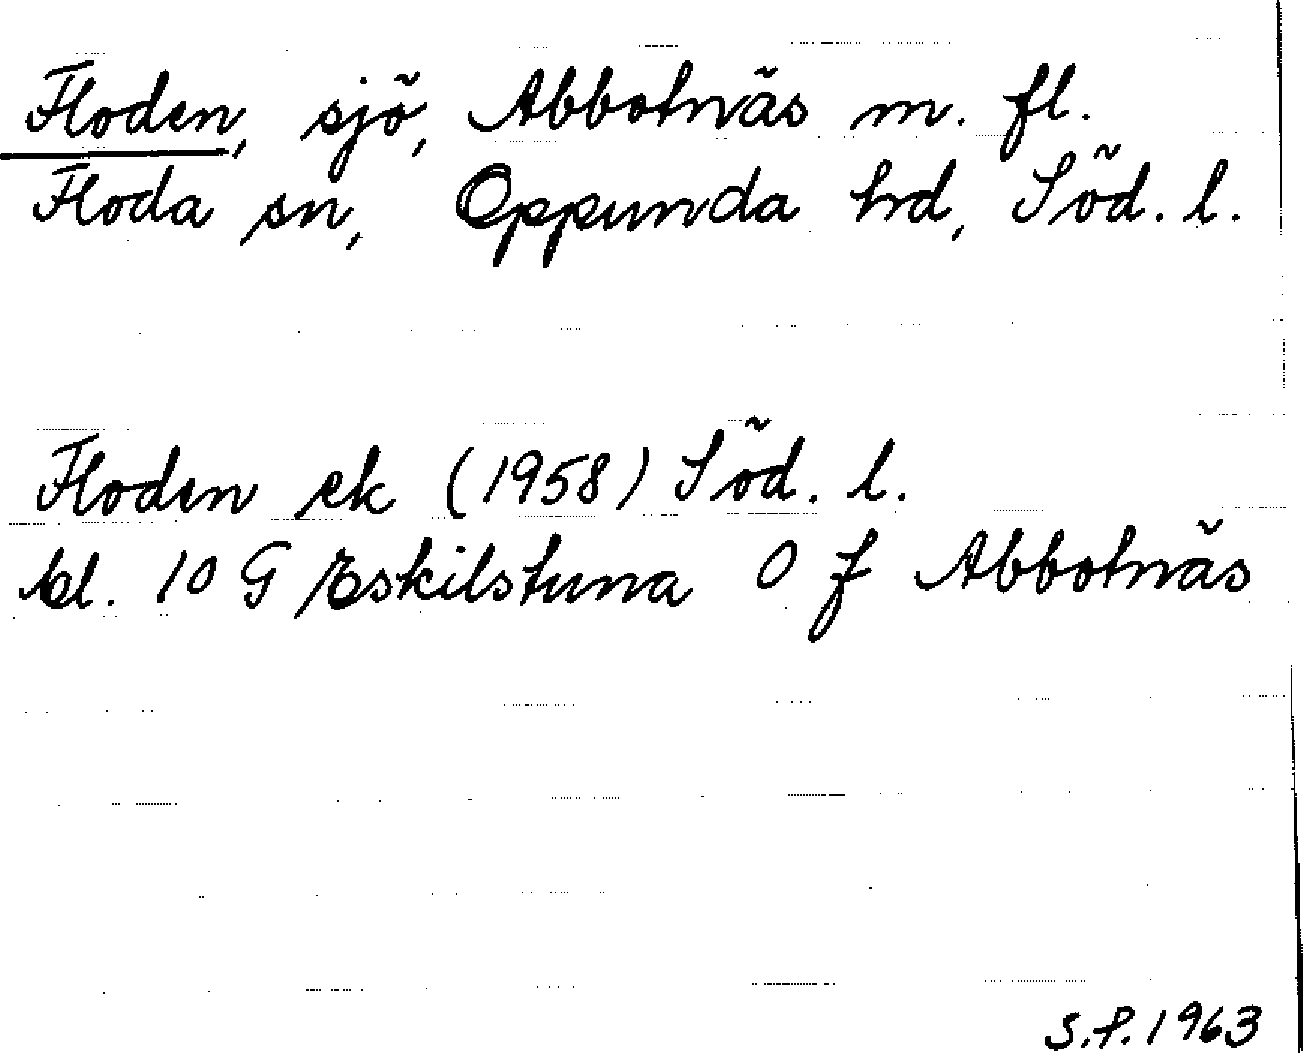 Floden, sjö, Abbotnäs m. fl.
Floda sn, Oppunda hd, Söd. l.
Floden ek (1958) Söd. l.
bl. 10 G Eskilstuna 0 f Abbotnäs
S.P. 1963